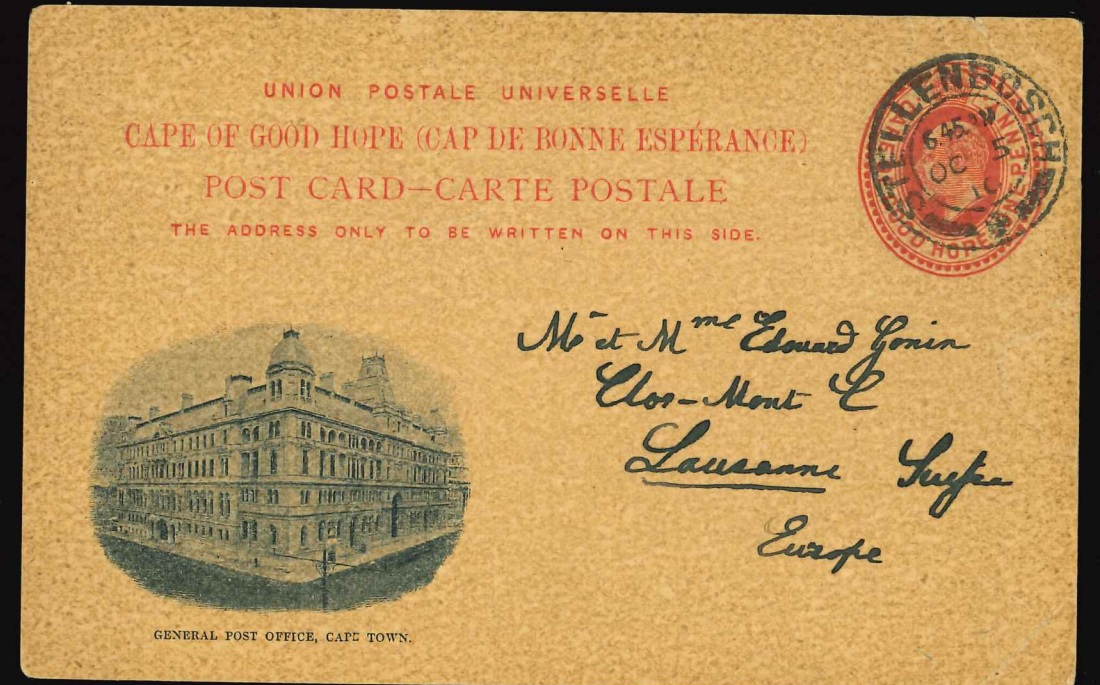 UNION POSTALE UNIVERSELLE
CAPE OF GOOD HOPE (CAP DE BONNE ESPÉRANCE)
POST CARD—CARTE POSTALE
THE ADDRESS ONLY TO BE WRITTEN ON THIS SIDE.
STELLENBOSCH
6.45
OC 5
10
GOOD HOPE ONE PENNY
Mr et Mme Edouard Gonin
Clos-Mont C
Lausanne Suisse
Europe
GENERAL POST OFFICE, CAPE TOWN.